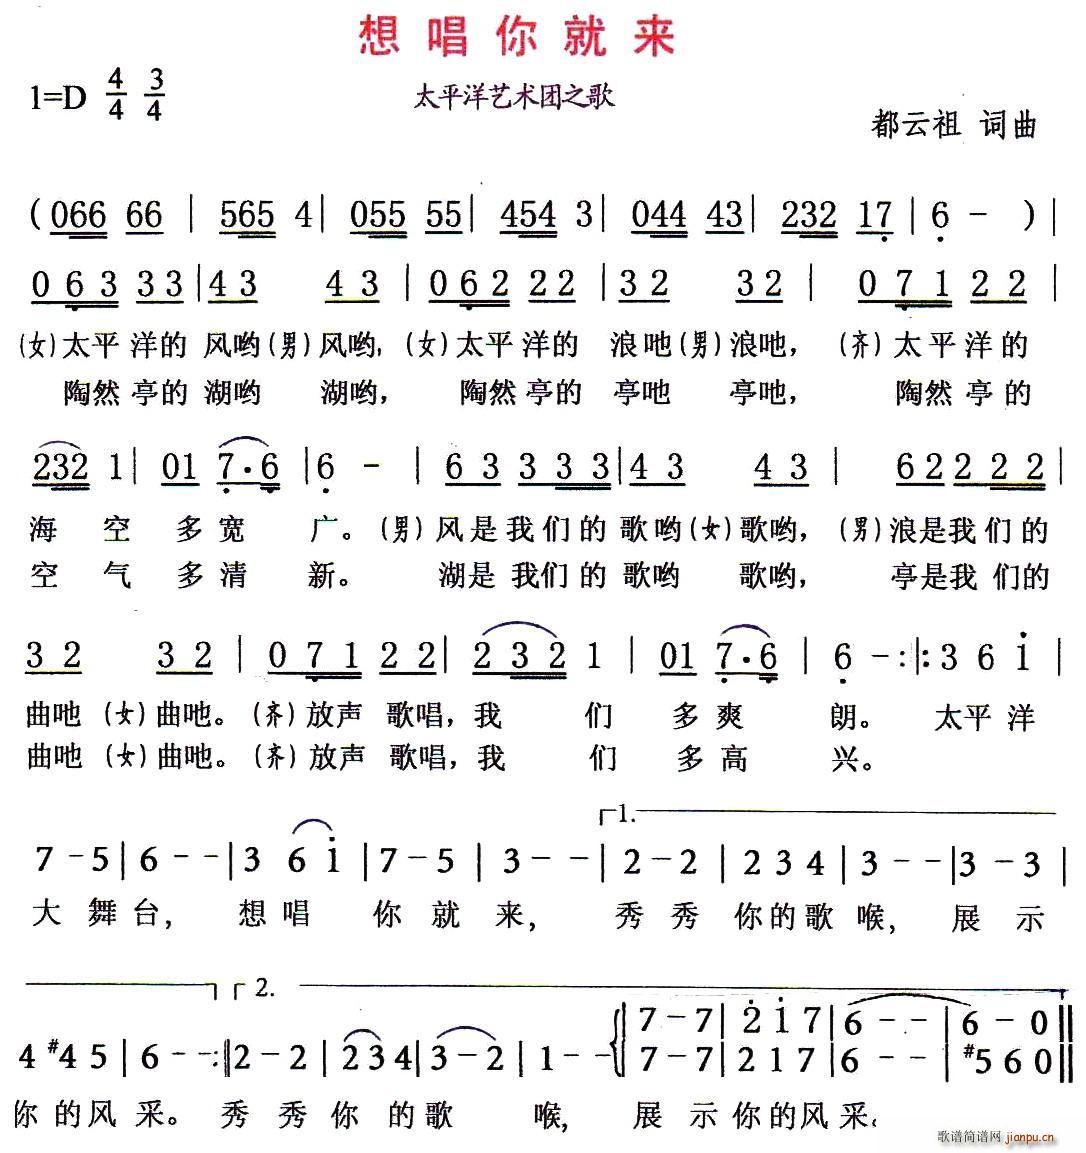 想唱你就来
1=D 4/4 3/4
太平洋艺术团之歌
都云祖 词曲
( 066 66 | 565 4 | 055 55 | 454 3 | 044 43 | 232 17 | 6 - ) |
0 6 3 3 3 | 4 3 4 3 | 0 6 2 2 2 | 3 2 3 2 | 0 7 1 2 2 |
(女)太平洋的 风哟(男)风哟, (女)太平洋的 浪吔(男)浪吔, (齐)太平洋的
陶然亭的 湖哟 湖哟, 陶然亭的 亭吔 亭吔, 陶然亭的
232 1 | 01 7·6 | 6 - | 6 3 3 3 3 | 4 3 4 3 | 6 2 2 2 2 |
海 空 多宽 广。(男)风是我们的歌哟(女)歌哟, (男)浪是我们的
空 气 多清 新。 湖是我们的歌哟 歌哟, 亭是我们的
3 2 3 2 | 0 7 1 2 2 | 2 3 2 1 | 01 7·6 | 6 - :||: 3 6 i |
曲吔 (女)曲吔。(齐)放声 歌唱,我 们 多爽 朗。 太平洋
曲吔 (女)曲吔。(齐)放声 歌唱,我 们 多高 兴。
1.
7 - 5 | 6 - - | 3 6 i | 7 - 5 | 3 - - | 2 - 2 | 2 3 4 | 3 - - | 3 - 3 |
大 舞台, 想唱 你就来, 秀秀你的歌喉, 展示
2.
7 - 7 | 2̇ i 7 | 6 - - | 6 - 0 ||
4 #4 5 | 6 - - :|| 2 - 2 | 2 3 4 | 3 - 2 | 1 - - | 7 - 7 | 2 1 7 | 6 - - | #5 6 0 ||
你的风采。秀秀你的歌 喉, 展示你的风采.
歌谱简谱网 jianpu.cn